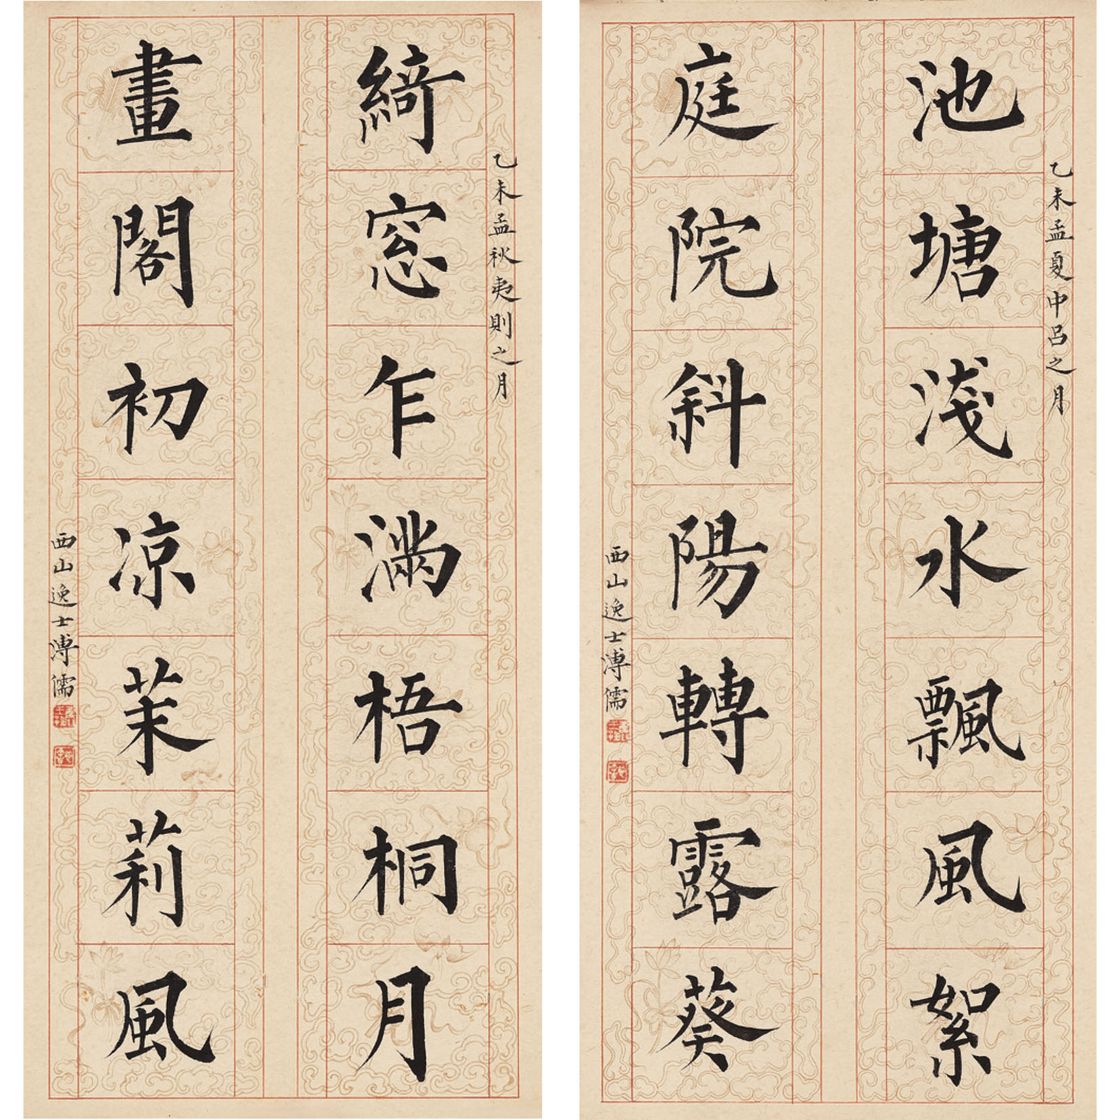 池塘淺水飄風絮
乙未孟夏中呂之月
庭院斜陽轉露葵
西山逸士溥儒
綺窓乍滿梧桐月
乙未孟秋夷則之月
畫閣初凉茉莉風
西山逸士溥儒